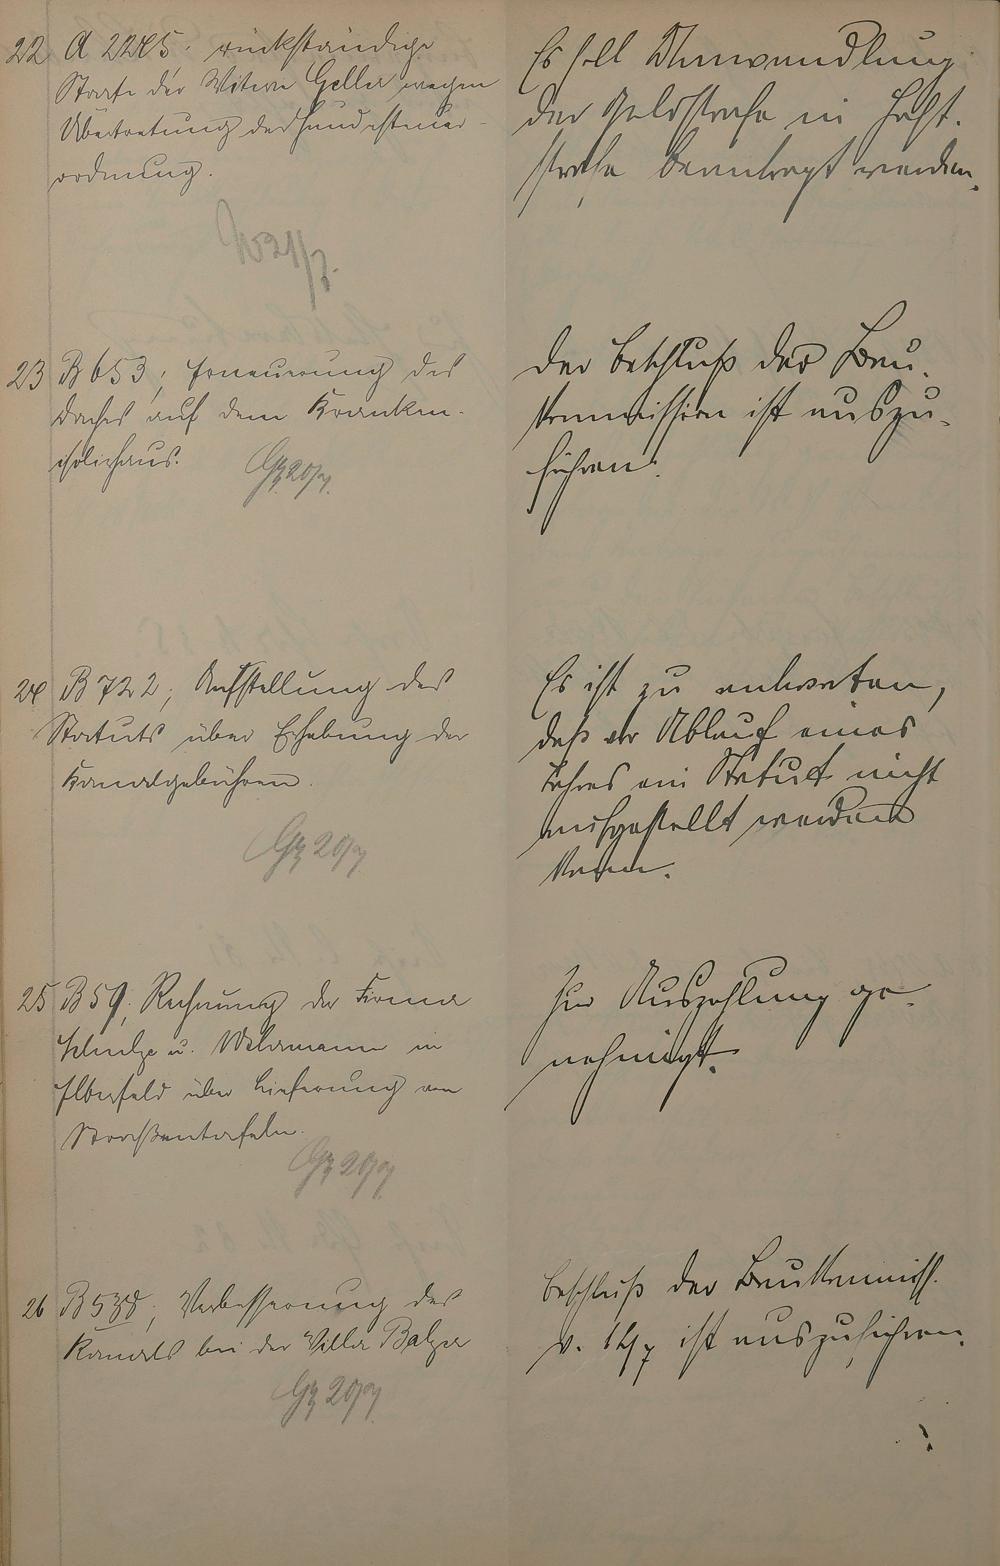 22 A 2245; rückständige
Strafe der Witwe Geller wegen
Übertretung der Hundesteuer-
ordnung.
Es soll Umwandlung
der Geldstrafe in Haft-
strafe beantragt werden.
23 B 653; Erneuerung des
Daches auf dem Kranken-
isolirhaus.
Gz 20/7.
Der Beschluß der Bau-
kommission ist auszu-
führen.
24 B 722; Aufstellung des
Statuts über Erhebung der
Kanalgebühren.
Gz 20/7
Es ist zu antworten,
daß vor Ablauf eines
Jahres ein Statut nicht
aufgestellt werden
kann.
25 B 59; Rechnung der Firma
Schulze u. Wehrmann in
Elberfeld über Lieferung von
Straßentafeln.
Gz 20/7
Zur Auszahlung ge-
nehmigt.
26 B 538; Verbesserung des
Kanals bei der Villa Balzer
Gz 20/7
Beschluß der Baukommiss.
v. 14/7 ist auszuführen.